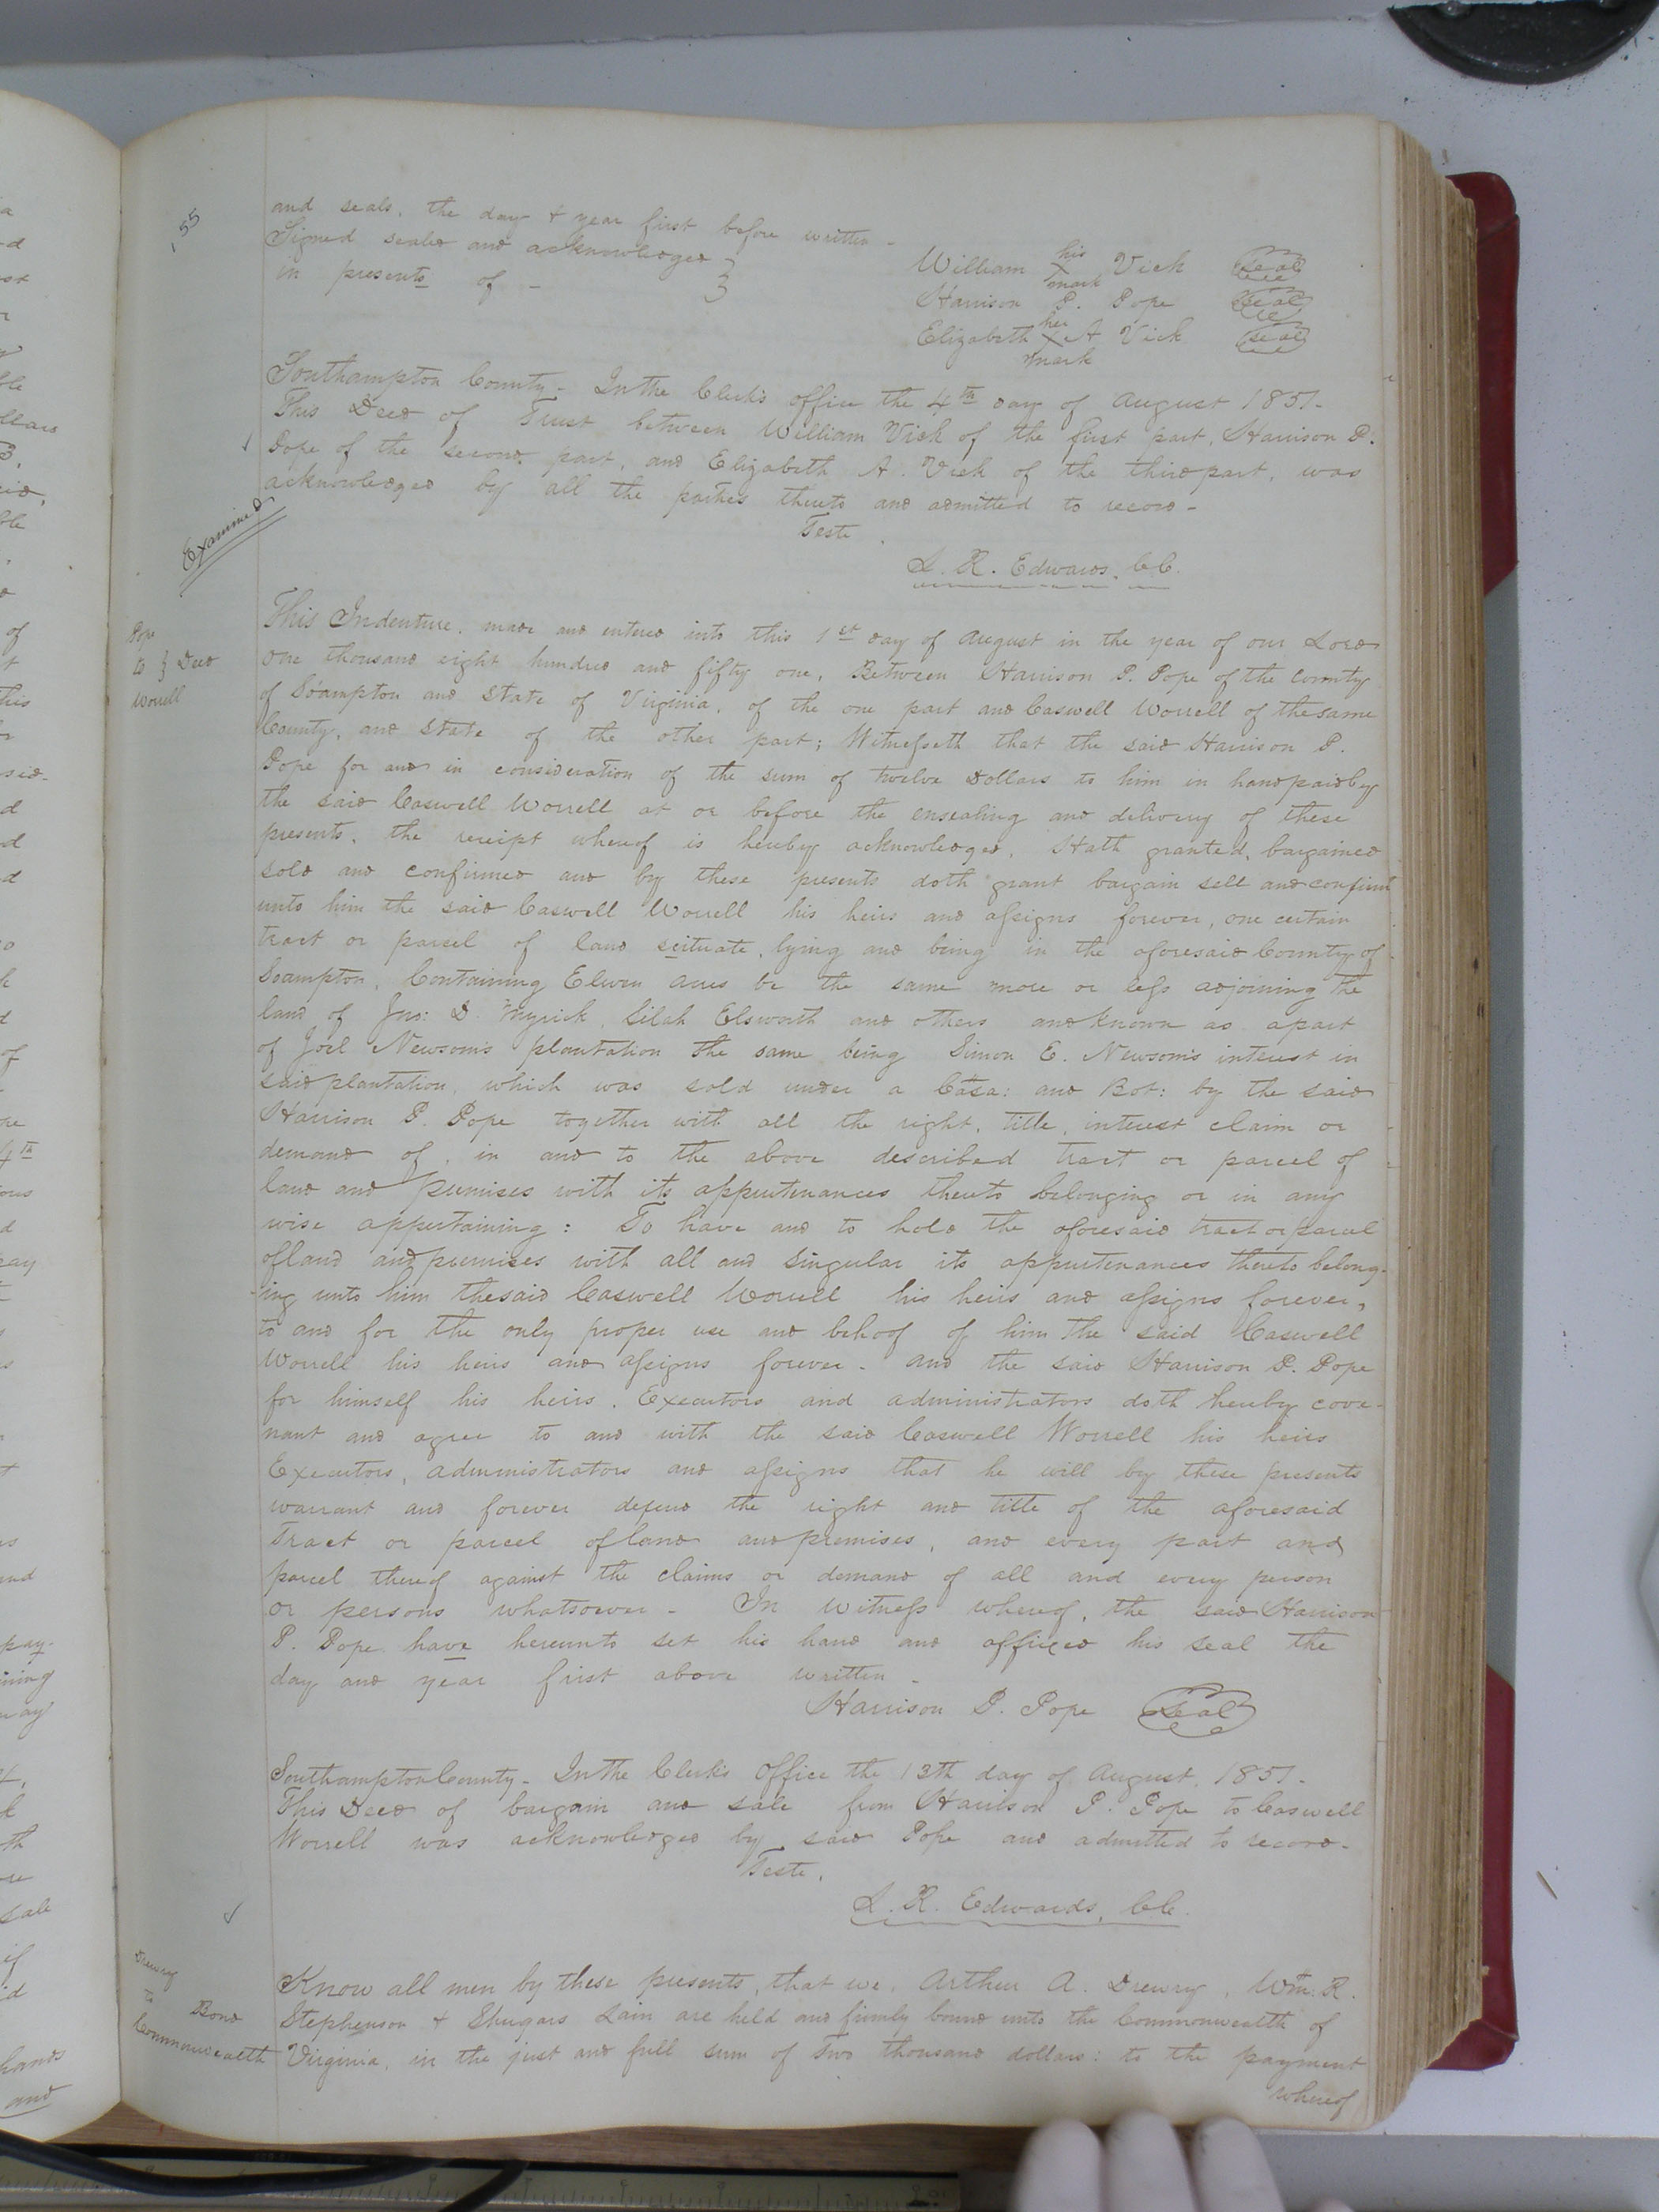 155
and seals, the day + year first before written -
Signed sealed and acknowledged }
in presents of -
William his X mark Vick Seal
Harrison P. Pope Seal
Elizabeth her X mark A Vick Seal
Southampton County - In the Clerk's office the 4th day of August 1851 -
This Deed of Trust between William Vick of the first part, Harrison P.
Pope of the second part, and Elizabeth A. Vick of the third part, was
acknowledged by all the parties thereto and admitted to record -
Teste
L. R. Edwards, C.C.
Examined
Pope
to } Deed
Worrell
This Indenture, made and entered into this 1st day of August in the year of our Lord
one thousand eight hundred and fifty one, Between Harrison P. Pope of the County
of So'ampton and State of Virginia, of the one part and Caswell Worrell of the same
County, and State of the other part; Witnesseth that the said Harrison P.
Pope for and in consideration of the sum of twelve Dollars to him in hand paid by
the said Caswell Worrell at or before the ensealing and delivery of these
presents, the receipt whereof is hereby acknowledged, Hath granted, bargained
sold and confirmed and by these presents doth grant bargain sell and confirm
unto him the said Caswell Worrell his heirs and assigns forever, one certain
tract or parcel of land scituate, lying and being in the aforesaid County of
Soampton, Containing Eleven acres be the same more or less adjoining the
land of Jno: D. Myrick, Silah Elsworth and others and known as a part
of Joel Newsom's plantation the same being Simon E. Newsom's interest in
said plantation, which was sold under a Casa: and Bot: by the said
Harrison P. Pope together with all the right, title, interest claim or
demand of, in and to the above described tract or parcel of
land and premises with its appurtenances thereto belonging or in any
wise appertaining: To have and to hold the aforesaid tract or parcel
of land and premises with all and singular its appurtenances thereto belong-
-ing unto him the said Caswell Worrell his heirs and assigns forever,
to and for the only proper use and behoof of him the said Caswell
Worrell his heirs and assigns forever - and the said Harrison P. Pope
for himself his heirs, Executors and administrators doth hereby cove-
nant and agree to and with the said Caswell Worrell his heirs
Executors, administrators and assigns that he will by these presents
warrant and forever defend the right and title of the aforesaid
tract or parcel of land and premises, and every part and
parcel thereof against the claims or demand of all and every person
or persons whatsoever - In Witness whereof, the said Harrison
P. Pope have hereunto set his hand and affixed his seal the
day and year first above written -
Harrison P. Pope Seal
Southampton County - In the Clerk's Office the 13th day of August, 1851 -
This Deed of bargain and sale from Harrison P. Pope to Caswell
Worrell was acknowledged by said Pope and admitted to record -
Teste,
L. R. Edwards, C.C.
Drewry
to Bond
Commonwealth
Know all men by these presents, that we, Arthur A. Drewry, Wm. R.
Stephenson + Shugars Lain are held and firmly bound unto the Commonwealth of
Virginia, in the just and full sum of Two thousand dollars: to the payment
whereof